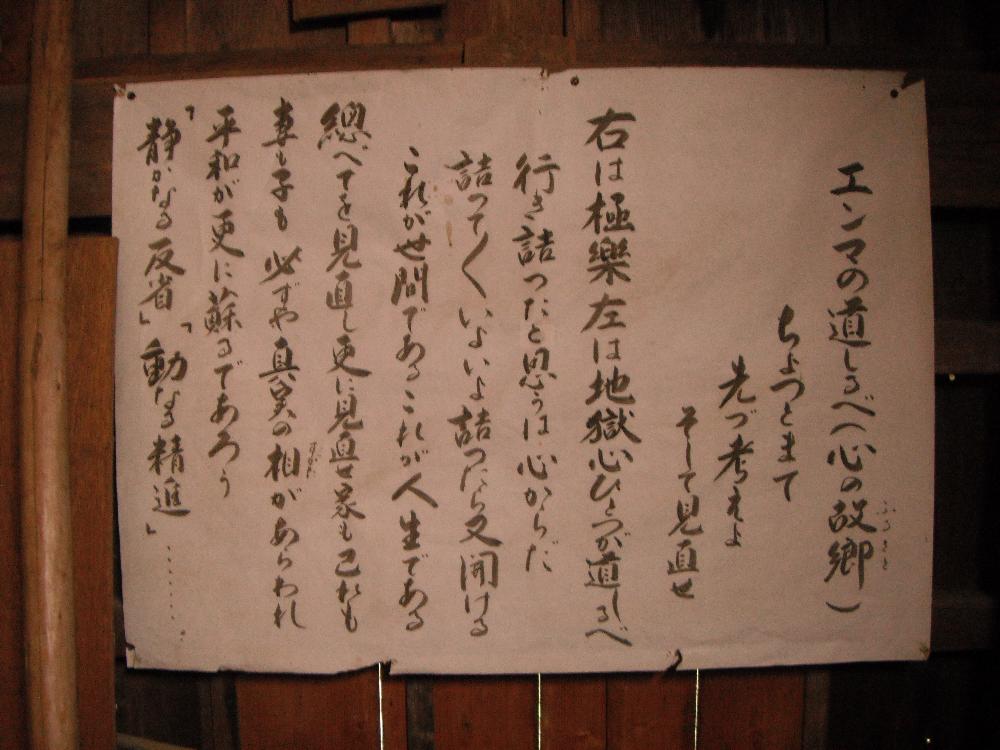 エンマの道しるべ(心の故郷)
ふるさと
ちょつとまて
先づ考えよ
そして見直せ
右は極樂左は地獄心ひとつが道しるべ
行き詰つたと思うは心からだ
詰つて〱いよいよ詰つたら又開ける
これが世間であるこれが人生である
總べてを見直し更に見直せ家も己れも
妻も子も必ずや真実の相があらわれ
すがた
平和が更に蘇るであろう
「静かなる反省」「動なる精進」………